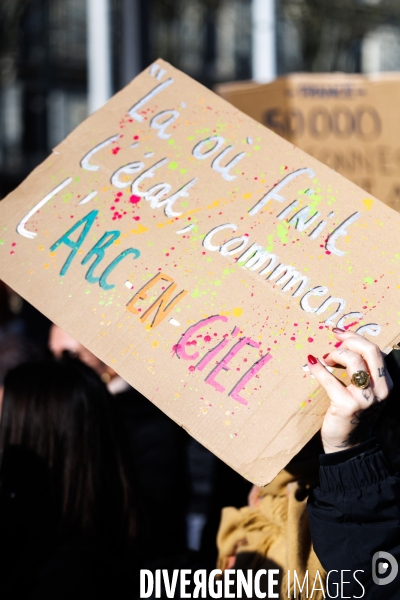 " Là où finit
l'état, commence
L'ARC-EN-CIEL "
FRANCE
50000
PERSONNES
DIVERGENCE IMAGES